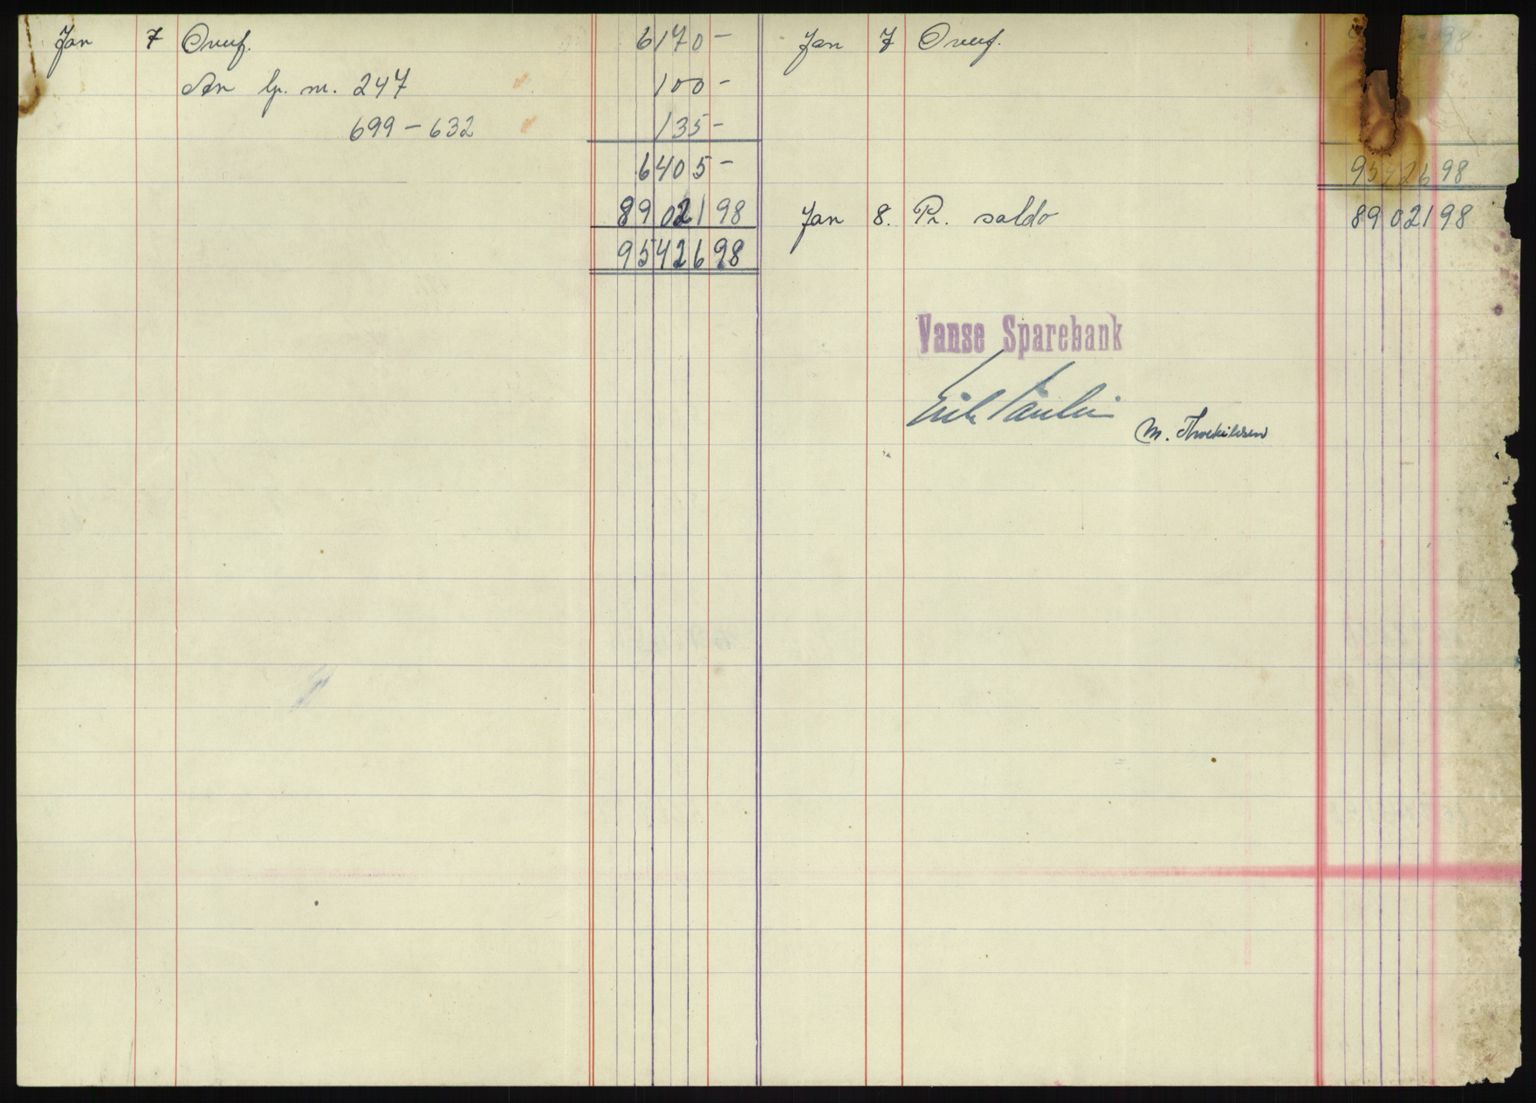 Jan 7 Overf. 6170 -
An lp. nr. 247 100 -
699 - 632 135 -
6405 -
89021 98
95426 98
Jan 7 Overf. 98
95426 98
Jan 8. Pr. saldo 89021 98
Vanse Sparebank
M. Thorkildsen